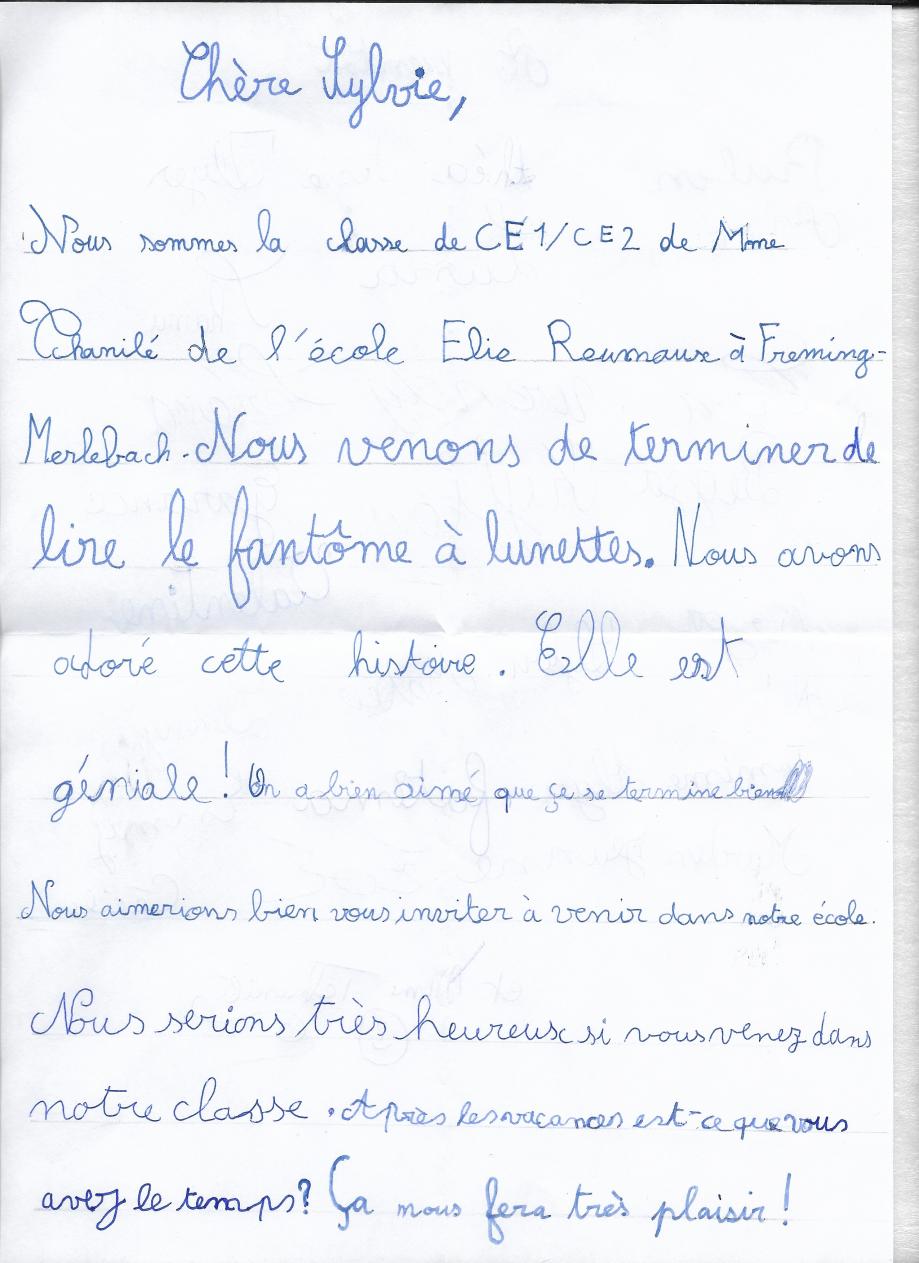 Chère Sylvie,
Nous sommes la classe de CE1/CE2 de Mme
Tchanilé de l'école Elie Reumaux à Freming-
Merlebach. Nous venons de terminer de
lire le fantôme à lunettes. Nous avons
adoré cette histoire. Elle est
géniale ! On a bien aimé que ça se termine bien
Nous aimerions bien vous inviter à venir dans notre école.
Nous serions très heureux si vous venez dans
notre classe. Après les vacances est-ce que vous
avez le temps ? Ça nous fera très plaisir !